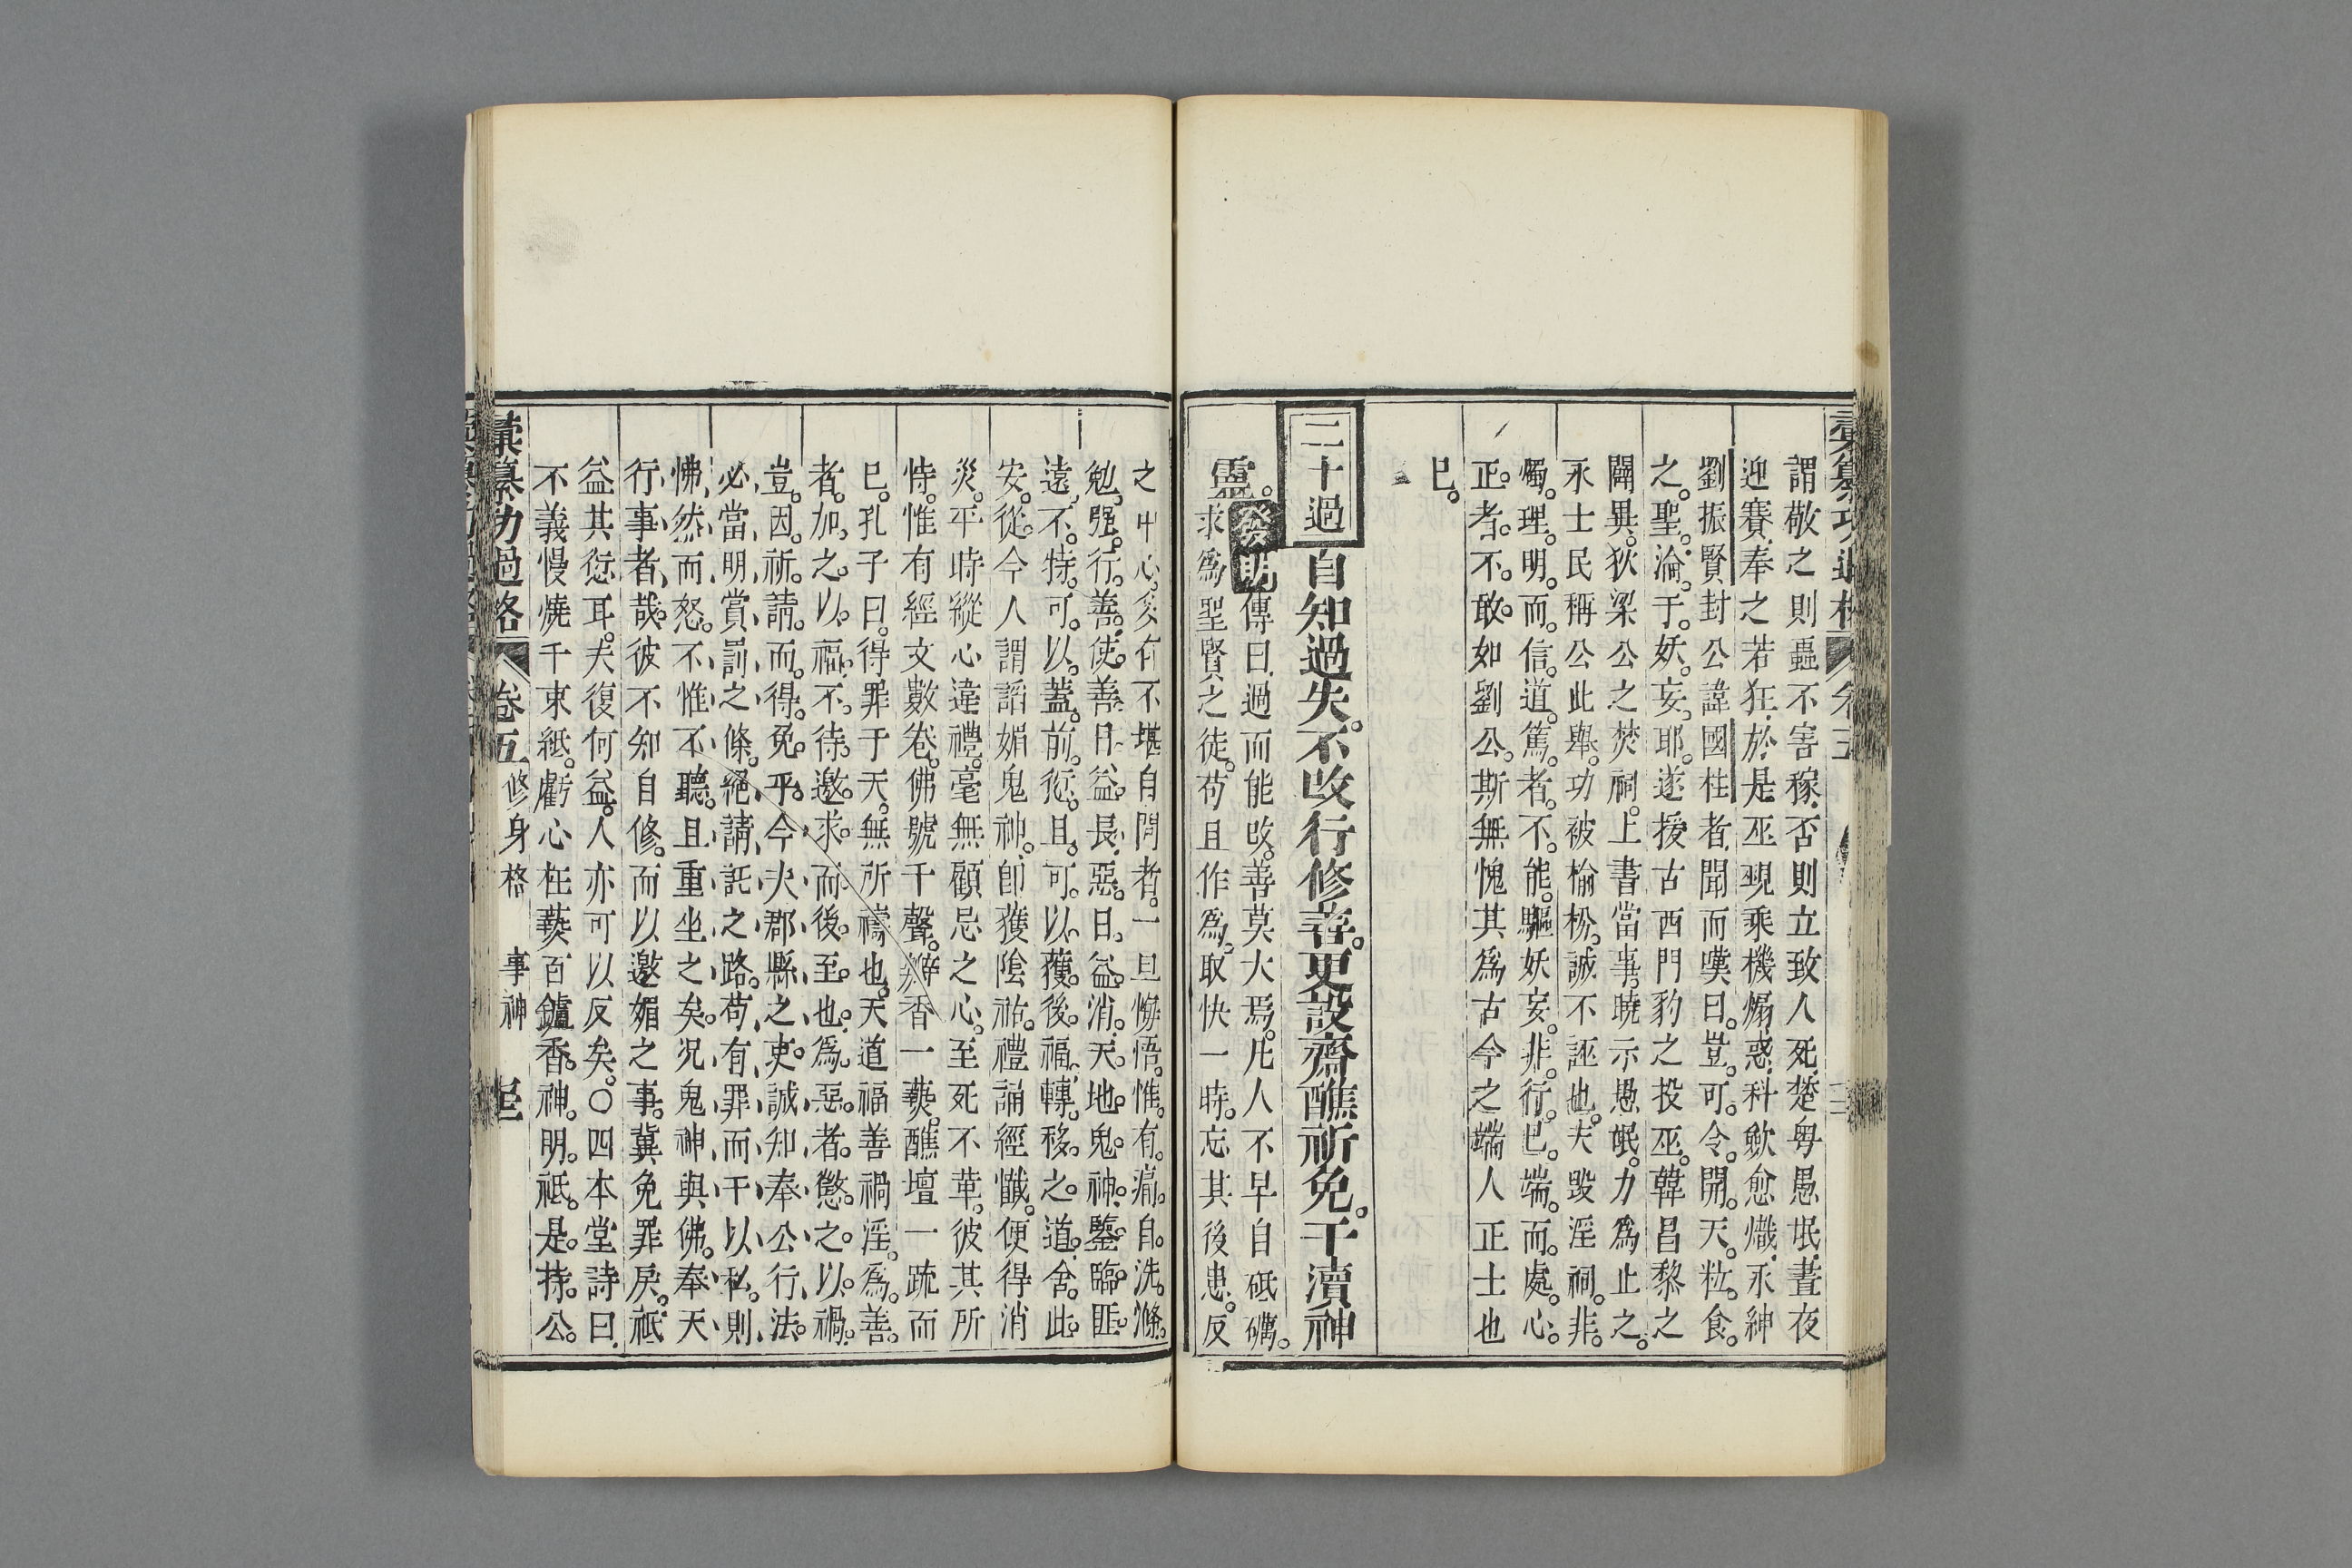 謂敬之則蟲不害稼否則立致人死楚粤愚氓晝夜
迎賽奉之若狂於是巫覡乘機煽惑科斂愈熾永紳
劉振賢封公諱國柱者聞而嘆曰豈可令開天粒食
之聖淪于妖妄耶遂援古西門豹之投巫韓昌黎之
闢異狄梁公之焚祠上書當事曉示愚氓力爲止之
永士民稱公此舉功被榆枌誠不誣也夫毀淫祠非
燭理明而信道篤者不能驅妖妄非行已端而處心
正者不敢如劉公斯無愧其爲古今之端人正士也
已
二十過自知過失不改行修善更設齋醮祈免干瀆神
靈發明傳曰過而能改善莫大焉凡人不早自砥礪
求爲聖賢之徒苟且作爲取快一時忘其後患反
之中心多有不堪自問者一旦悔悟惟有痛自洗滌
勉强行善使善日益長惡日益消天地鬼神鑒臨匪
遠不特可以蓋前愆且可以獲後福轉移之道舍此
安從今人謂謟媚鬼神卽獲陰祐禮誦經懺便得消
災平時縱心違禮毫無顧忌之心至死不革彼其所
恃惟有經文數卷佛號千聲辦香一爇醮壇一疏而
已孔子曰得罪于天無所禱也天道福善禍淫爲善
者加之以福不待邀求而後至也爲惡者懲之以禍
豈因祈請而得免乎今夫郡縣之吏誠知奉公行法
必當明賞罰之條絕請託之路苟有罪而干以私則
怫然而怒不惟不聽且重坐之矣况鬼神與佛奉天
行事者哉彼不知自修而以邀媚之事冀免罪戾祇
益其愆耳夫復何益人亦可以反矣〇四本堂詩曰
不義慢燒千束紙虧心枉爇百鑪香神明祇是持公
彙纂功過格 卷五 修身格 事神